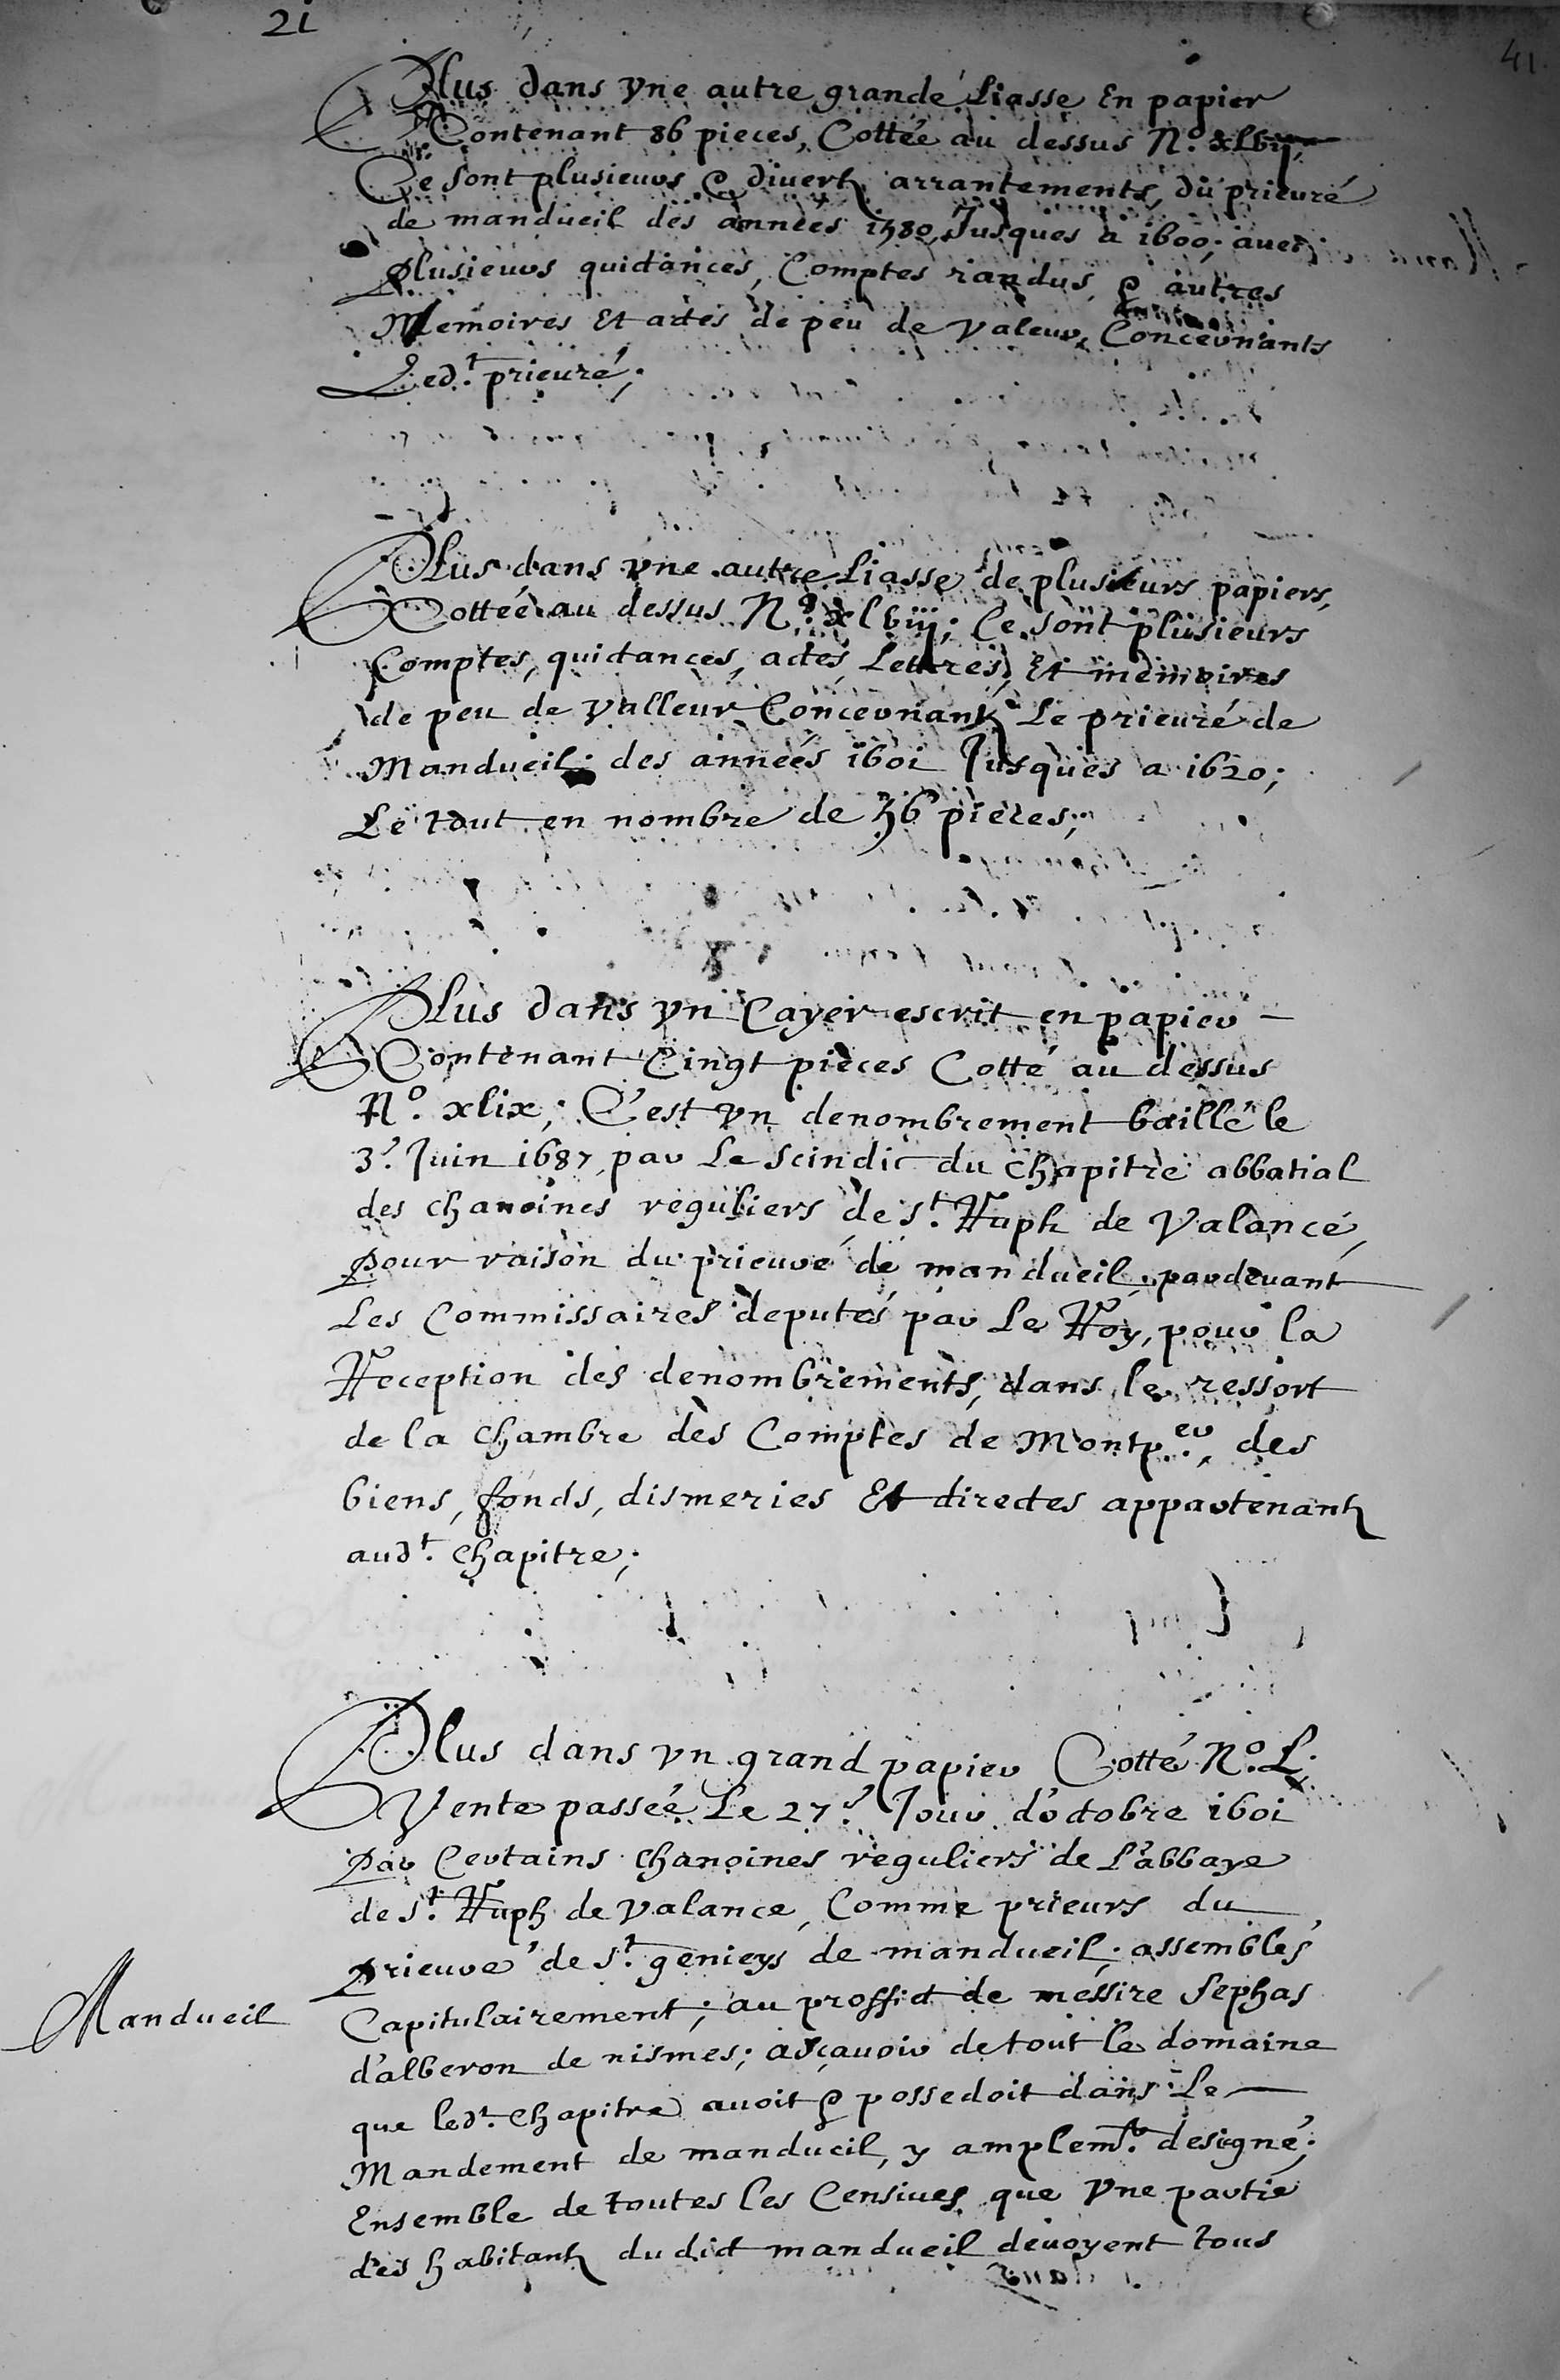 21
41
Plus dans vne autre grande Liasse En papier
Contenant 86 pieces, Cottée au dessus N.º xlvij,
Ce sont plusieurs & diuertz arrantements, du prieuré
de mandueil des années 1580 Jusques a 1600; auec
plusieurs quidances, Comptes randus, & autres
Memoires Et actes de peu de valeur, Concernants
Ledt. prieuré;
Plus dans vne autre Liasse de plusieurs papiers,
Cottée au dessus N.º xlviij; Ce sont plusieurs
Comptes, quidances, actes, Lettres, Et memoires
de peu de valleur Concernantz Le prieuré de
Mandueil; des années 1601 Jusques a 1620;
Le tout en nombre de 36 pieces;
Plus dans vn Cayer escrit en papier
Contenant Cingt pièces Cotté au dessus
N.º xlix; C'est vn denombrement baillé le
3.e Juin 1687 par Le scindic du chapitre abbatial
des chanoines reguliers de St. Ruph de Valance,
pour raison du prieuré de mandueil, pardeuant
Les Commissaires deputés par Le Roy, pour la
Reception des denombrements, dans le ressort
de la chambre des Comptes de Montp.er, des
biens, fonds, dismeries Et directes appartenantz
audt. chapitre;
Plus dans vn grand papier Cotté N.º L.
Vente passée Le 27.e Jour d'octobre 1601
Par Certains chanoines reguliers de L'abbaye
de St. Ruph de Valance, Comme prieurs du
prieuré de St. genieys de mandueil; assemblés
Mandueil
Capitulairement; au proffict de messire Sephas
d'alberon de nismes; asçauoir de tout le domaine
que ledt. chapitre auoit & possedoit dans Le
Mandement de manducil, y amplemt. designé;
Ensemble de toutes les Censiues que vne partie
des habitantz du dict mandueil deuoyent tous